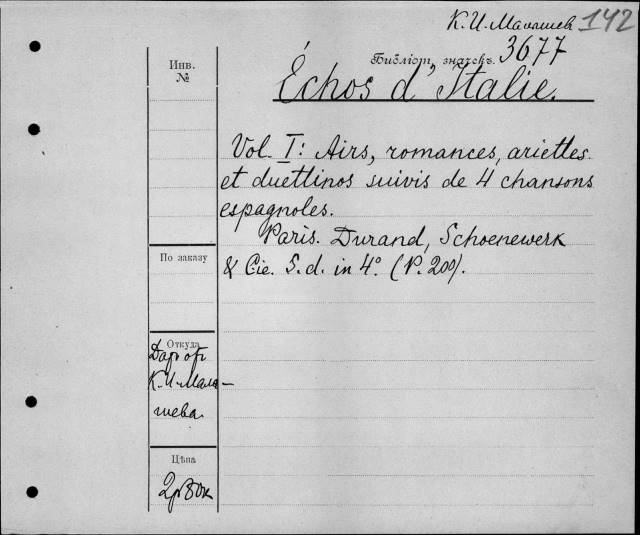 К. И. Малышев 142
Библіот. значекъ. 3677
Инв.
№
Échos d'Italie.
Vol. I: Airs, romances, ariettes
et duettinos suivis de 4 chansons
espagnoles.
Paris. Durand, Schoenewerk
& Cie. S. d. in 4º. (P. 200).
По заказу
Откуда
Даръ от
К. И. Малы-
шева.
Цѣна
2р 80к